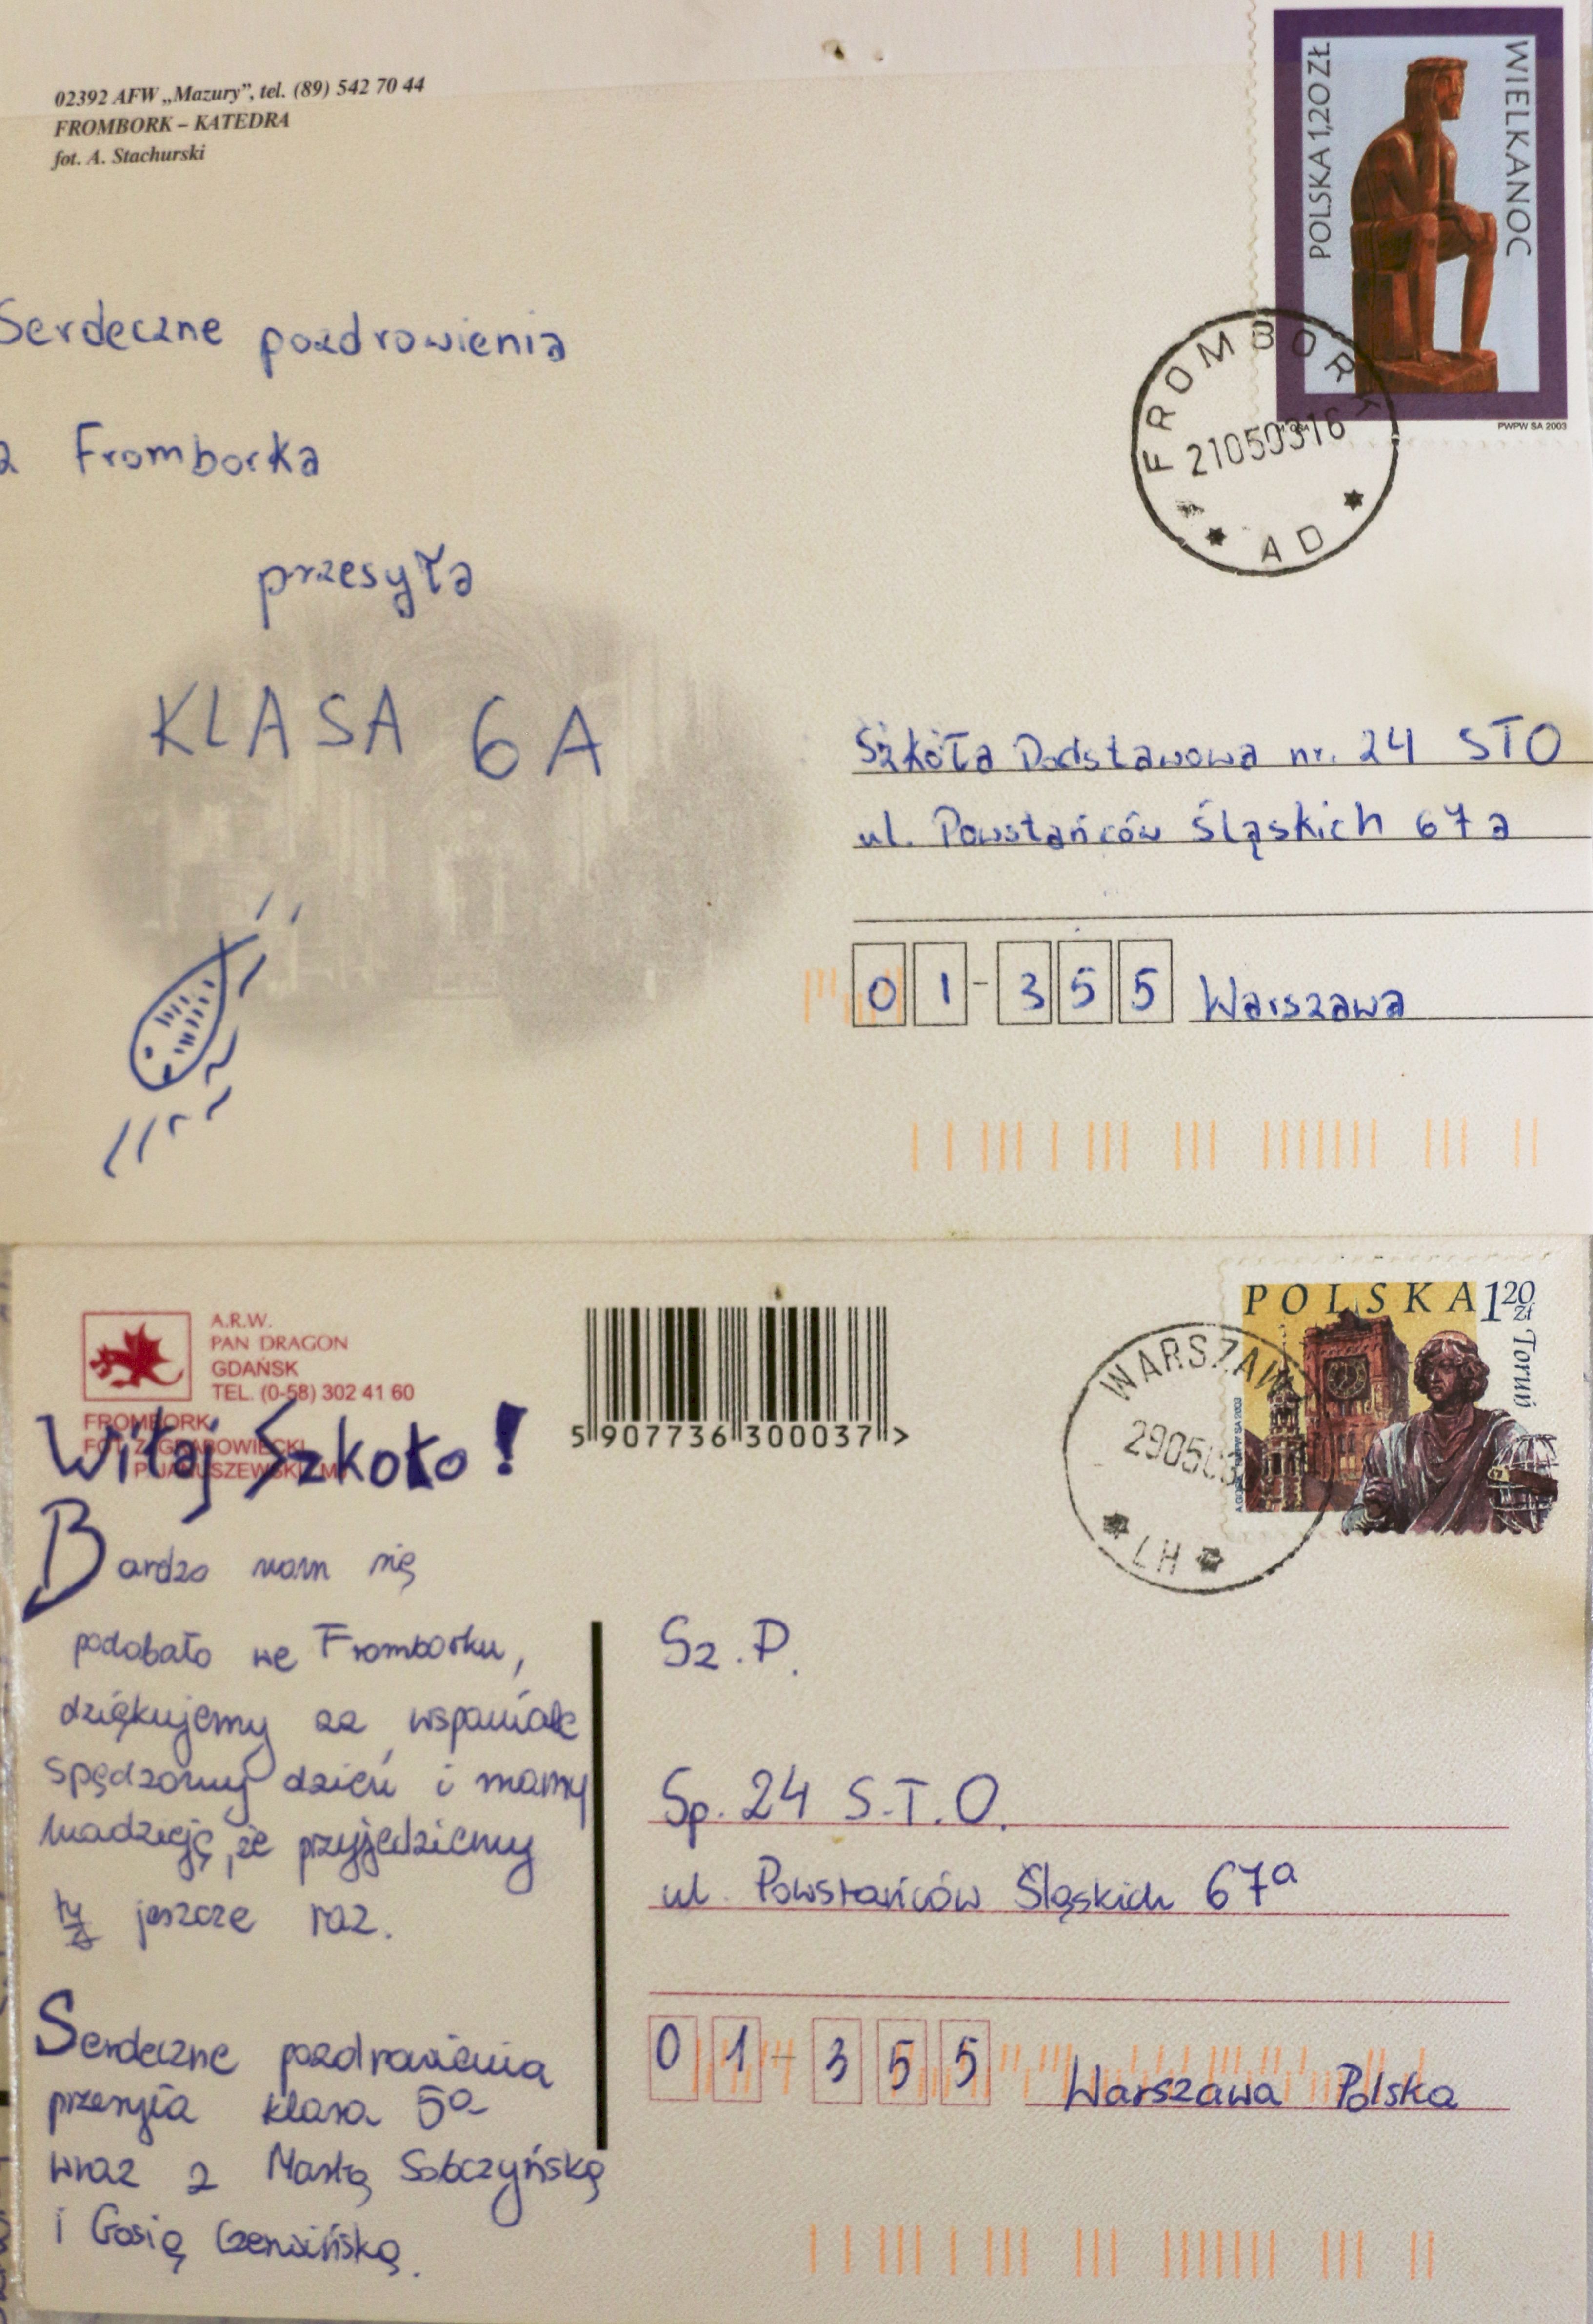 02392 AFW „Mazury”, tel. (89) 542 70 44
FROMBORK – KATEDRA
fot. A. Stachurski
POLSKA 1,20 ZŁ
WIELKANOC
PWPW SA 2003
FROMBORK
21050316
AD
Serdeczne pozdrowienia
z Fromborka
przesyła
KLASA 6A
Szkoła Podstawowa nr. 24 STO
ul. Powstańców Śląskich 67a
01-355 Warszawa
A.R.W.
PAN DRAGON
GDAŃSK
TEL. (0-58) 302 41 60
FROMBORK
FOT. Z. GRABOWIECKI
5 907736 300037 >
POLSKA 1 20 zł
Toruń
WARSZAWA
290503
LH
Witaj Szkoło!
Bardzo nam się
podobało we Fromborku,
dziękujemy za wspaniale
spędzony dzień i mamy
nadzieję, że przyjedziemy
tu jeszcze raz.
Serdeczne pozdrowienia
przesyła klasa 5a
wraz z Martą Sobczyńską
i Gosią Czerwińską.
Sz. P.
Sp. 24 S.T.O.
ul. Powstańców Śląskich 67a
01-355 Warszawa Polska